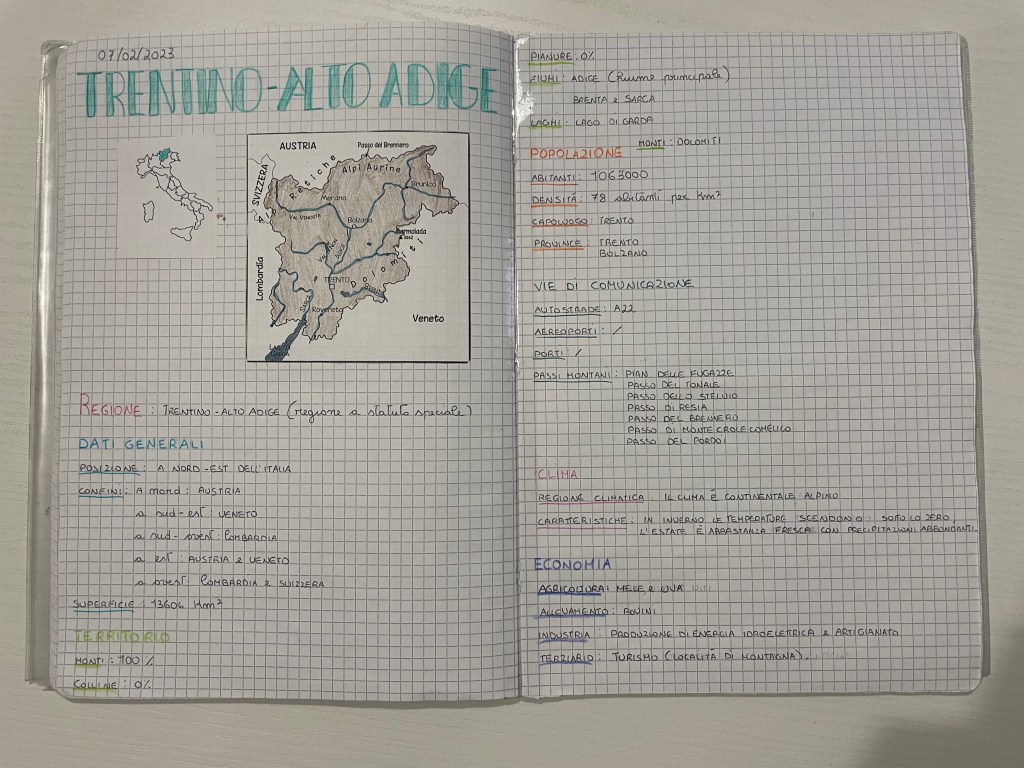 07/02/2023
TRENTINO-ALTO ADIGE
AUSTRIA
Passo del Brennero
SVIZZERA
Alpi Aurine
Brunico
Merano
Val Venosta
Bolzano
Marmolada
Lombardia
TRENTO
Dolomiti
Rovereto
Veneto
REGIONE : TRENTINO-ALTO ADIGE (regione a statuto speciale)
DATI GENERALI
POSIZIONE : A NORD-EST DELL'ITALIA
CONFINI : A nord : AUSTRIA
a sud-est : VENETO
a sud-ovest : LOMBARDIA
a est : AUSTRIA e VENETO
a ovest : LOMBARDIA e SVIZZERA
SUPERFICIE : 13606 Km²
TERRITORIO
MONTI : 100 %
COLLINE : 0%
PIANURE : 0%
FIUMI : ADIGE (fiume principale)
BRENTA e SARCA
LAGHI : LAGO DI GARDA
MONTI : DOLOMITI
POPOLAZIONE
ABITANTI : 1063000
DENSITÁ : 78 abitanti per Km²
CAPOLUOGO : TRENTO
PROVINCE : TRENTO
BOLZANO
VIE DI COMUNICAZIONE
AUTOSTRADE : A22
AEREOPORTI : /
PORTI : /
PASSI MONTANI : PIAN DELLE FUGAZZE
PASSO DEL TONALE
PASSO DELLO STELVIO
PASSO DI RESIA
PASSO DEL BRENNERO
PASSO DI MONTE CROCE COMELICO
PASSO DEL PORDOI
CLIMA
REGIONE CLIMATICA : IL CLIMA É CONTINENTALE ALPINO
CARATTERISTICHE : IN INVERNO LE TEMPERATURE SCENDONO SOTTO LO ZERO,
L'ESTATE É ABBASTANZA FRESCA CON PRECIPITAZIONI ABBONDANTI.
ECONOMIA
AGRICOLTURA : MELE e UVA
ALLEVAMENTO : BOVINI
INDUSTRIA : PRODUZIONE DI ENERGIA IDROELETRICA e ARTIGIANATO
TERZIARIO : TURISMO (LOCALITÁ DI MONTAGNA).